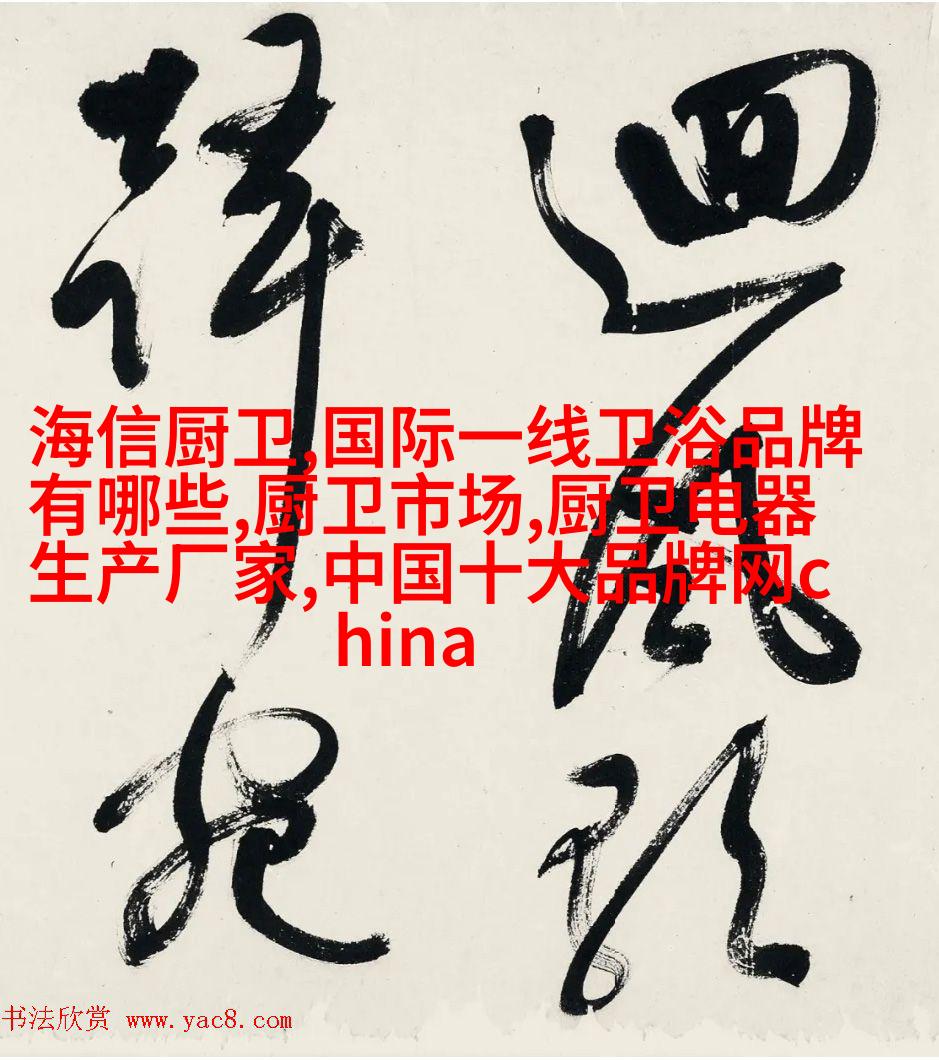 迴風
海信厨卫,国际一线卫浴品牌
有哪些,厨卫市场,厨卫电器
生产厂家,中国十大品牌网c
hina
书法欣赏 www.yac8.com